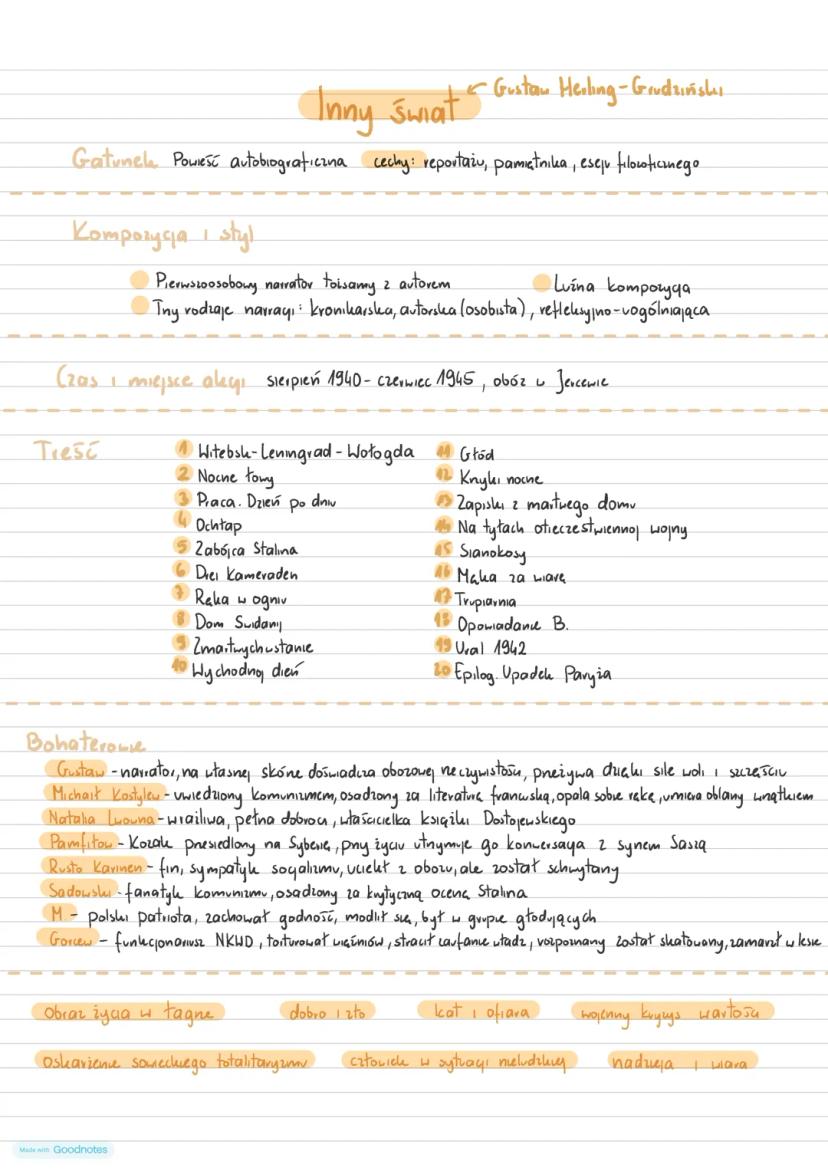 Inny świat ← Gustaw Herling-Grudziński
Gatunek Powieść autobiograficzna cechy: reportażu, pamiętnika, eseju filozoficznego
Kompozycja i styl
Pierwszoosobowy narrator tożsamy z autorem Luźna kompozycja
Trzy rodzaje narracji: kronikarska, autorska (osobista), refleksyjno-uogólniająca
Czas i miejsce akcji sierpień 1940 - czerwiec 1945, obóz w Jercewie
Treść
1 Witebsk-Leningrad-Wołogda
2 Nocne łowy
3 Praca. Dzień po dniu
4 Ochłap
5 Zabójca Stalina
6 Drei Kameraden
7 Ręka w ogniu
8 Dom Swidanij
9 Zmartwychwstanie
10 Wychodnoj dień
11 Głód
12 Krzyki nocne
13 Zapiski z martwego domu
14 Na tyłach otieczestwiennoj wojny
15 Sianokosy
16 Męka za wiarę
17 Trupiarnia
18 Opowiadanie B.
19 Ural 1942
20 Epilog. Upadek Paryża
Bohaterowie
Gustaw - narrator, na własnej skórze doświadcza obozowej rzeczywistości, przeżywa dzięki sile woli i szczęściu
Michaił Kostylew - uwiedziony komunizmem, osadzony za literaturę francuską, opala sobie rękę, umiera oblany wrzątkiem
Natalia Lwowna - wrażliwa, pełna dobroci, właścicielka książki Dostojewskiego
Pamfiłow - Kozak przesiedlony na Syberię, przy życiu utrzymuje go konwersacja z synem Saszą
Rusto Karinen - fin, sympatyk socjalizmu, uciekł z obozu, ale został schwytany
Sadowski - fanatyk komunizmu, osadzony za krytyczną ocenę Stalina
M - polski patriota, zachował godność, modlił się, był w grupie głodujących
Gorcew - funkcjonariusz NKWD, torturował więźniów, stracił zaufanie władz, rozpoznany został skatowany, zamarzł w lesie
Obraz życia w łagrze dobro i zło kat i ofiara wojenny kryzys wartości
Oskarżenie sowieckiego totalitaryzmu człowiek w sytuacji nieludzkiej nadzieja i wiara
Made with Goodnotes